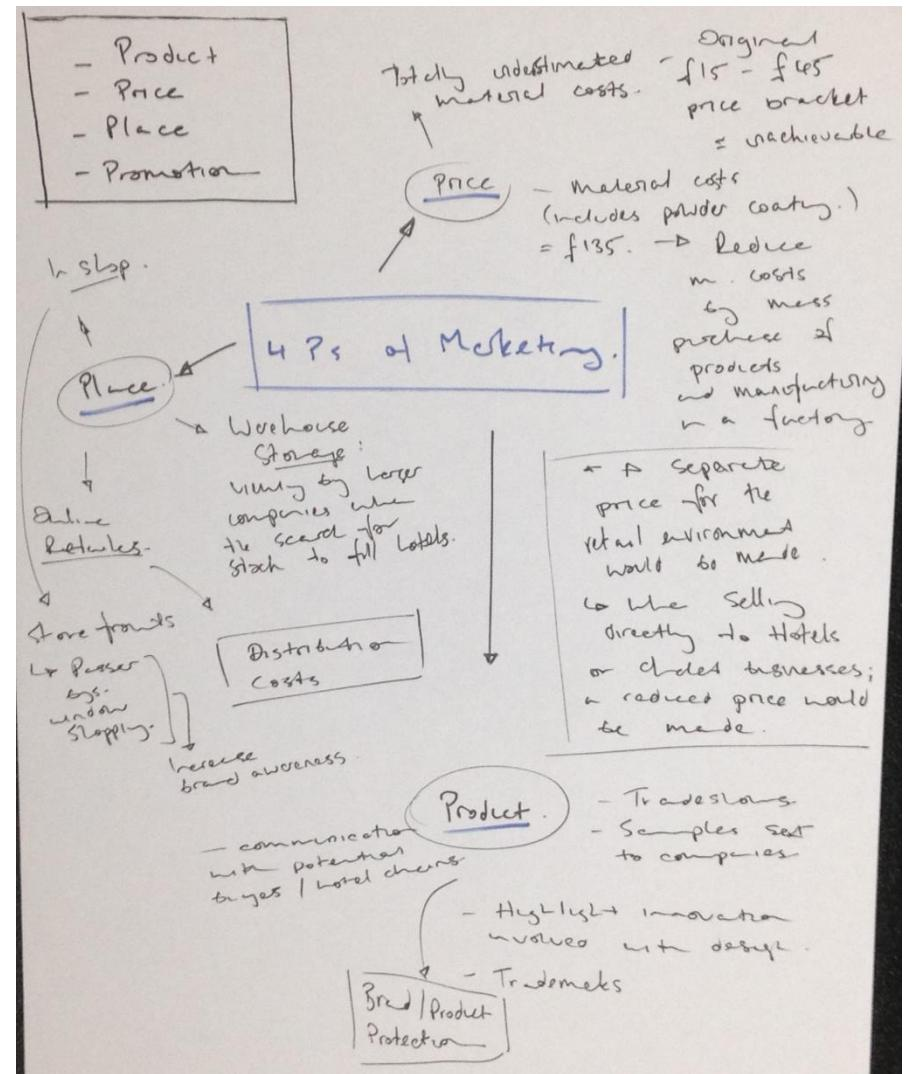 - Product
- Price
- Place
- Promotion
Totally underestimated
material costs.
- Original
£15 - £45
price bracket
= unachievable
Price
- Material costs
(includes powder coating.)
= £135. → Reduce
m. costs
by mass
purchase of
products
and manufacturing
in a factory
In shop.
4 Ps of Marketing.
Place.
Warehouse
Storage:
viewing by larger
companies when
the search for
stock to fill hotels.
Online
Retailers.
Store fronts
↳ Passer
bys.
window
shopping.
Increase
brand awareness.
Distribution
Costs
A separate
price for the
retail environment
would be made.
↳ When selling
directly to Hotels
or chalet businesses;
a reduced price would
be made.
Product.
- communication
with potential
buyes / hotel chains
- Tradeshows.
- Samples sent
to companies
- Highlight innovation
involved with design.
- Trademarks
Brand/Product
Protection